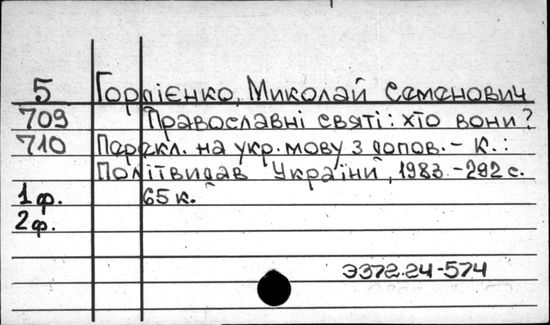 5 Гордієнко, Миколай Семенович
709 Православні святі: хто вони?
710 Перекл. на укр. мову з допов. – К.:
Політвидав України, 1983. – 292 с.
1ф. 65 к.
2ф.
Э372.24-574